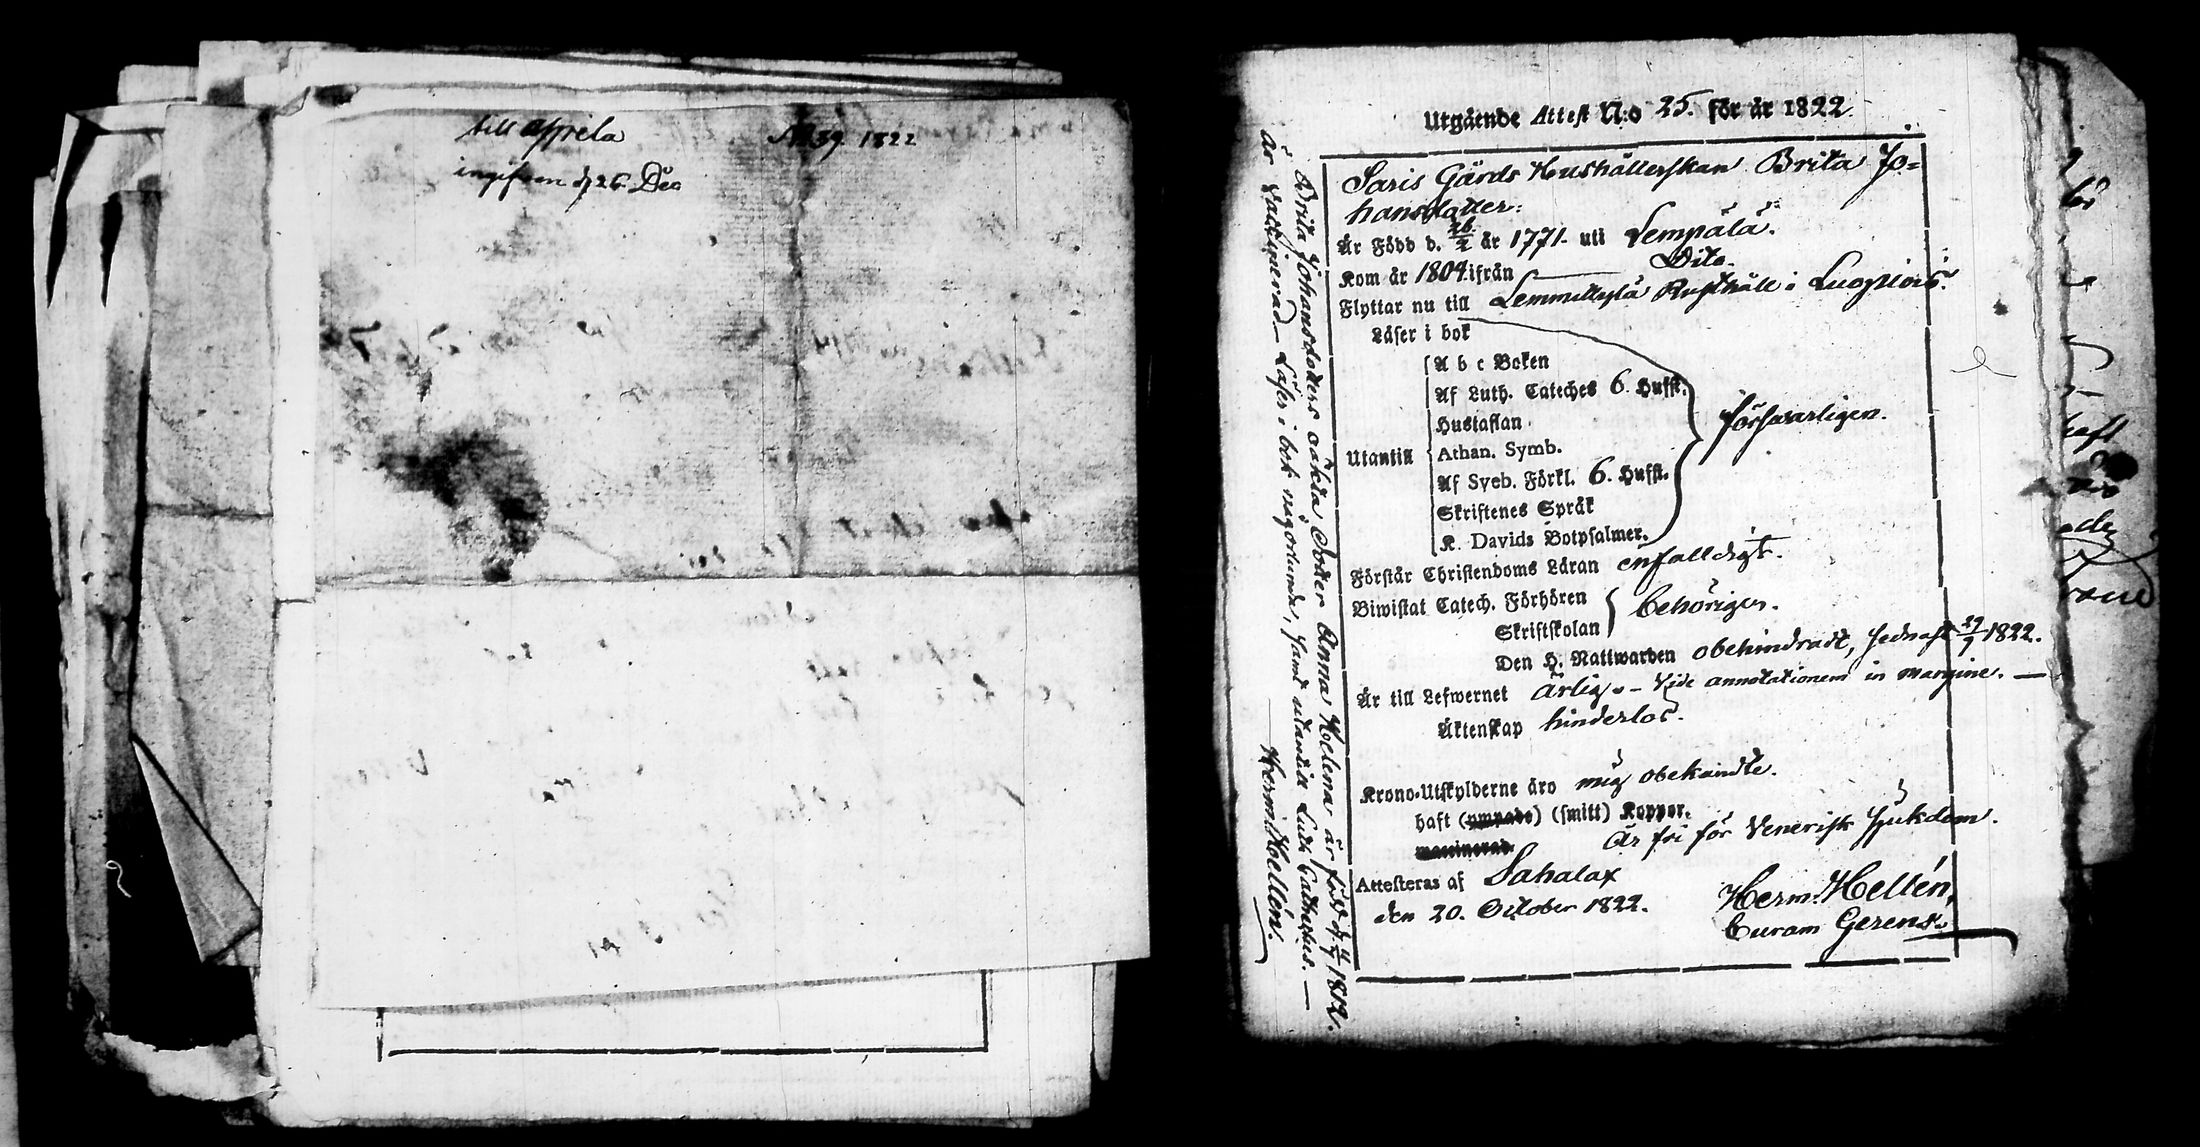 till Appila
N:39. 1822
ingifven d 26. Dec
Utgående Attest N:o 25. för år 1822.
Saris Gårds Hushållerskan Brita Jo=
hansdotter:
Är Född d. 26/2 år 1771. uti Lempälä.
Kom år 1809. ifrån Dito.
Flyttar nu till Rusthåll i
Läser i bok
A b c Boken
Af Luth. Cateches 6. Hufst.
Hustaflan
Utantill
Athan. Symb.
försvarligen.
Af Sveb. Förkl. 6. Hufst.
Skriftenes Språk
K. Davids Botpsalmer.
Förstår Christendoms Läran enfalldigt.
Biwistat Catech. Förhören
Skriftskolan
behörigen.
Den H. Nattwarden obehindradt, sednast 29/7 1822.
Är till Lefwernet Ärlig. - Vide annotationem in margine. —
Äktenskap hinderlos.
Krono-Utskylderne äro mig obekandte.
haft (ympade) (smitt) Koppor.
vaccinerad.
Är fri för Venerisk sjukdom.
Attesteras af Sahalax
den 20. October 1822.
Herm. Hellén,
Curam Gerens.
Brita Johansdotters oäkta Dotter Anna Helena är född d. 1812.
är Vaccinerad — Läser i bok någorlunda, samt utantill Luth. Catheches. —
Herm. Hellén.